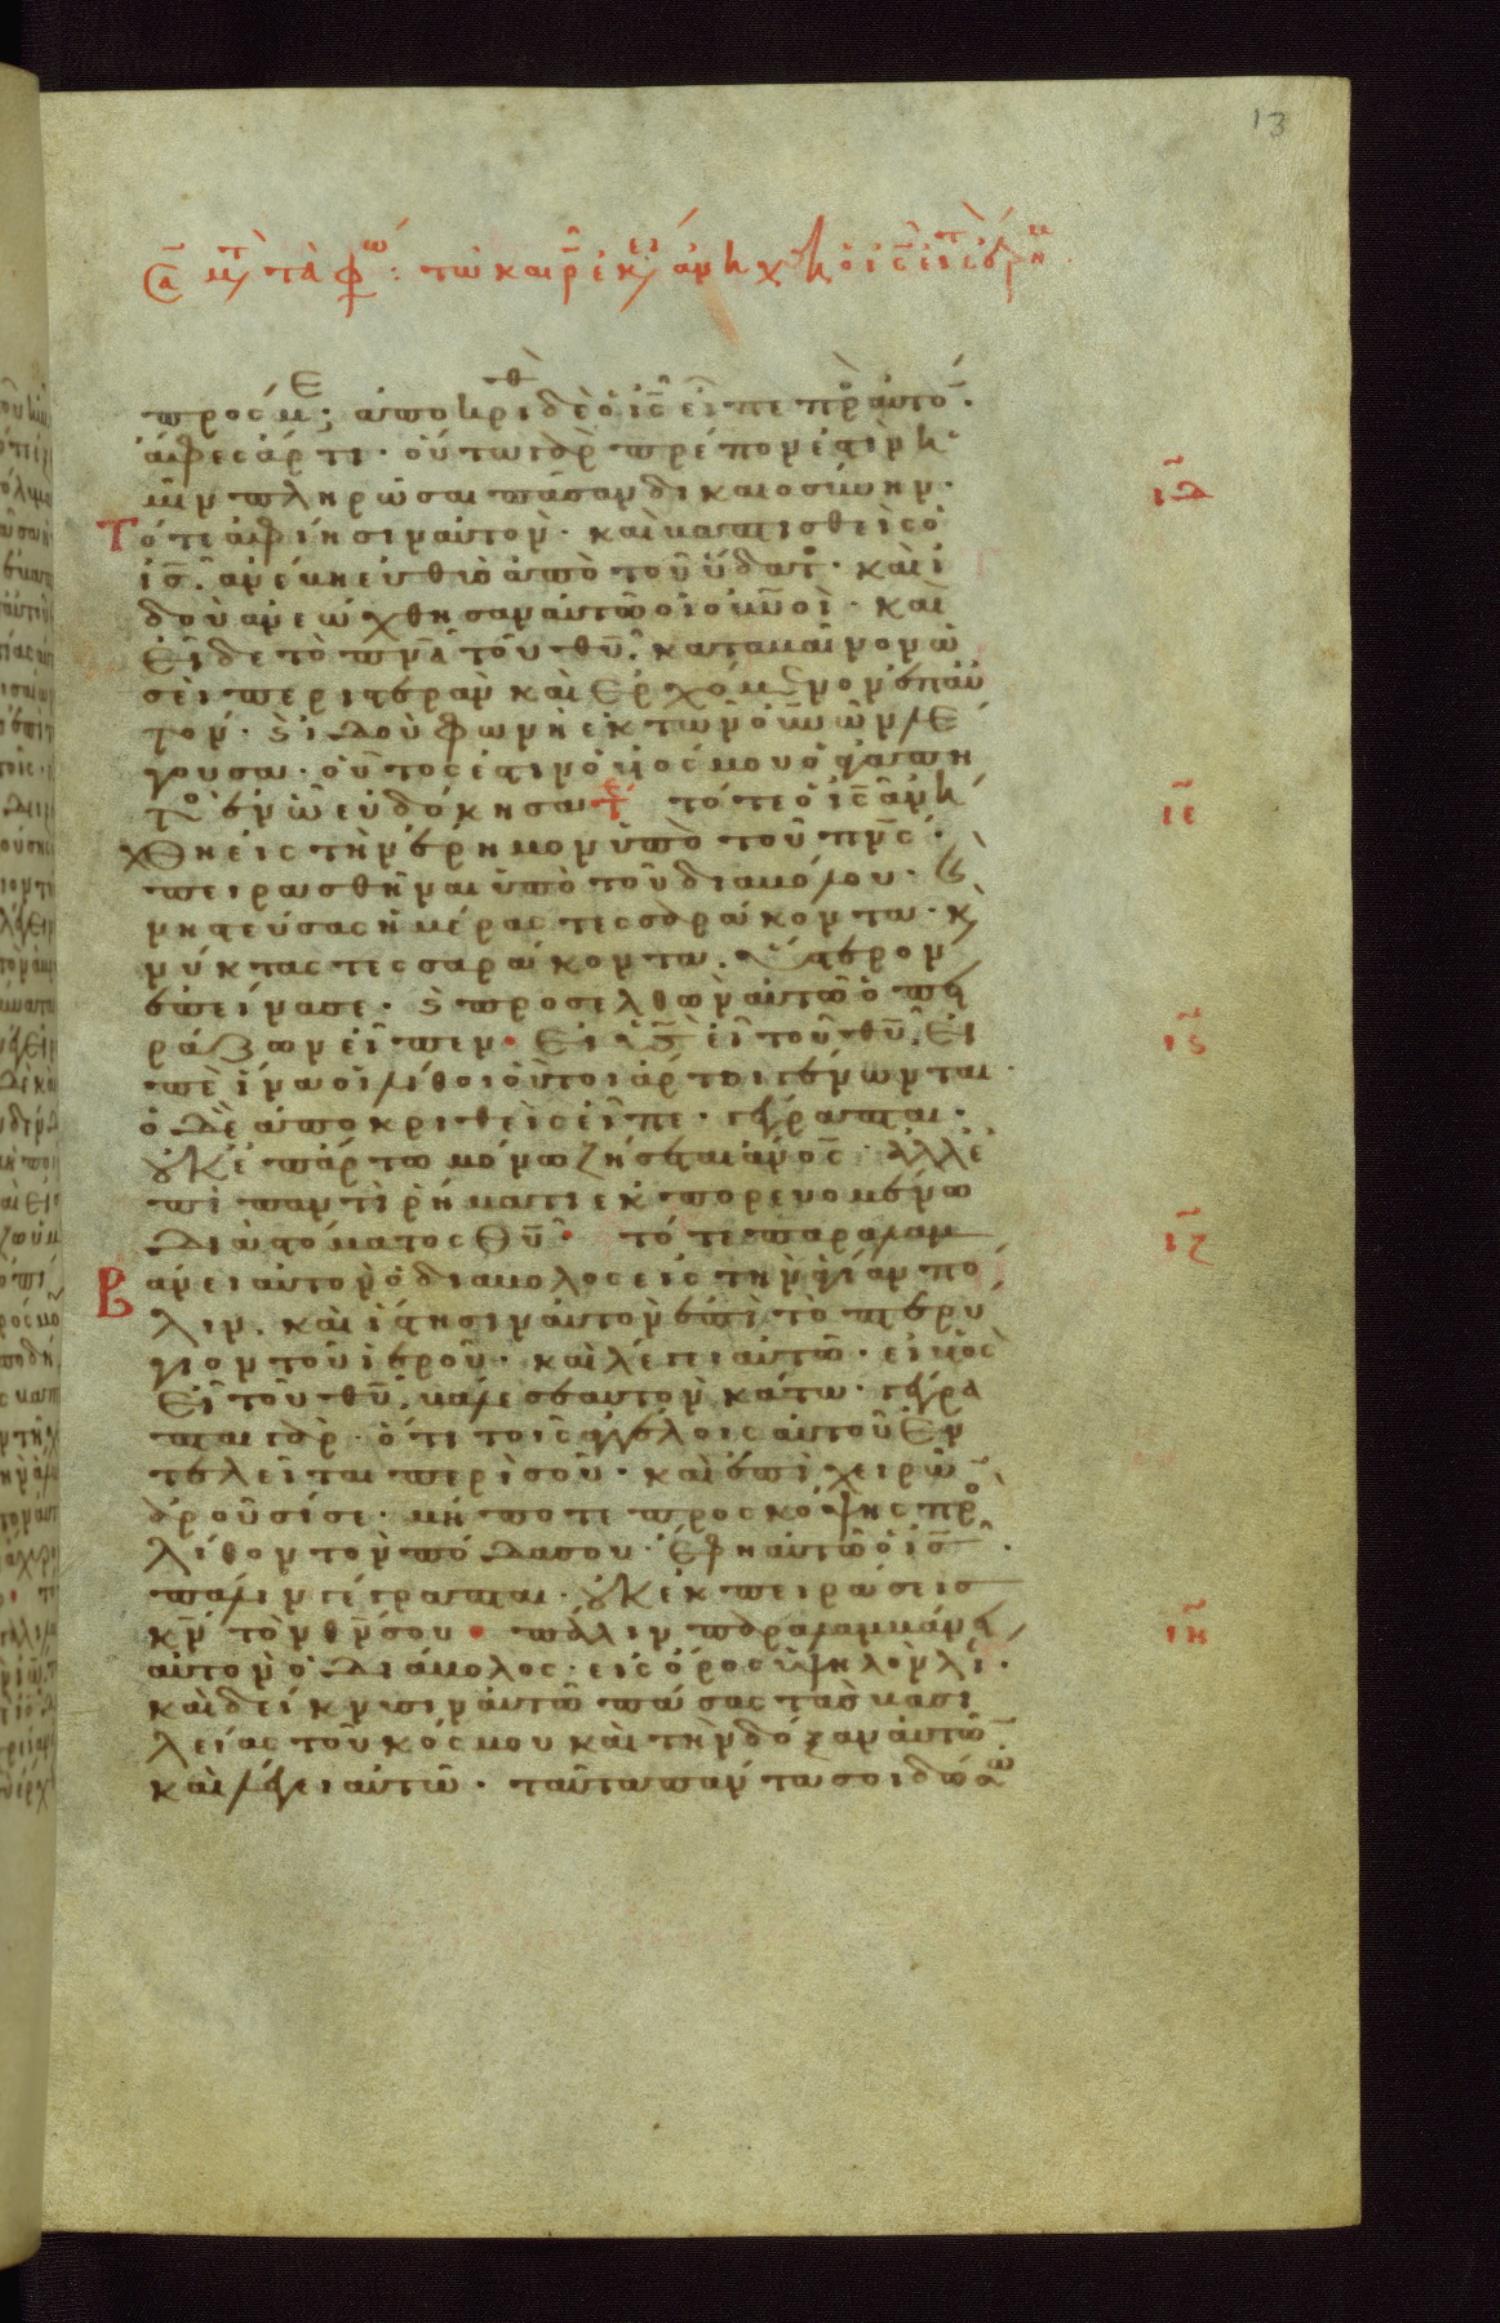 13
πρός με; ἀποκριθ δὲ ὁ ις̅ εἶπε πρ αὐτό̅.
ἄφες ἄρτι. οὕτω γὰρ πρέπον ἐστὶν ἡ
μῖν πληρῶσαι πᾶσαν δικαιοσύνην.
ιδ
Τότε ἀφίησιν αὐτόν. καὶ βαπτισθεὶς ὁ
ις̅. ἀνέβη εὐθὺς ἀπὸ τοῦ ὕδατο. καὶ ἰ
δοὺ ἀνεώχθησαν αὐτῶ οἱ οὐν̅οὶ. καὶ
εἶδε τὸ πν̅α τοῦ θυ̅. καταβαῖνον ὡ
σεὶ περιστερὰν καὶ ἐρχόμενον ἐπ' αὐ
τόν. ϗ ἰδοὺ φωνὴ ἐκ τῶν οὐν̅ῶν λέ
γουσα. οὗτός ἐστιν ὁ υἱός μου ὁ ἀγαπη
τὸ ἐν ὧ εὐδόκησα τε τότε ὁ ις̅ ἀνή
ιε
χθη εἰς τὴν ἔρημον ὑπὸ τοῦ πν̅ς.
πειρασθῆναι ὑπὸ τοῦ διαβόλου. ϗ
νηστεύσας ἡμέρας τεσσαράκοντα. ϗ
νύκτας τεσσαράκοντα. ὕστερον
ἐπείνασε. ϗ προσελθὼν αὐτῶ ὁ πει
ράζων εἶπεν. εἰ υς̅ εἶ τοῦ θυ̅. εἰ
ις
πὲ ἵνα οἱ λίθοι οὗτοι ἄρτοι γένωνται.
ὁ δὲ ἀποκριθεὶς εἶπε. γέγραπται.
οὐκ ἐπ' ἄρτω μόνω ζήσεται ἀν̅ος. ἀλλ' ἐ
πὶ παντὶ ῥήματι ἐκπορευομένω
διὰ στόματος θυ̅. τότε παραλαμ
ιζ
βάνει αὐτὸν ὁ διάβολος εἰς τὴν ἁγίαν πό
λιν. καὶ ἵστησιν αὐτὸν ἐπὶ τὸ πτερύ
γιον τοῦ ἱεροῦ. καὶ λέγει αὐτῶ. εἰ υἱὸς
εἶ τοῦ θυ̅. βάλε σεαυτὸν κάτω. γέγρα
πται γὰρ. ὅτι τοῖς ἀγγέλοις αὐτοῦ ἐν
τελεῖται περὶ σοῦ. καὶ ἐπὶ χειρῶ̅
ἀροῦσί σε. μήποτε προσκόψης πρ
λίθον τὸν πόδα σου. ἔφη αὐτῶ ὁ ις̅.
πάλιν γέγραπται. οὐκ ἐκπειράσεις
κν̅ τὸν θν̅ σου. πάλιν παραλαμβάνει
ιη
αὐτὸν ὁ διάβολος. εἰς ὄρος ὑψηλὸν λί.
καὶ δείκνυσιν αὐτῶ πάσας τὰς βασι
λείας τοῦ κόσμου καὶ τὴν δόξαν αὐτῶ̅
καὶ λέγει αὐτῶ. ταῦτα πάντα σοι δώσω